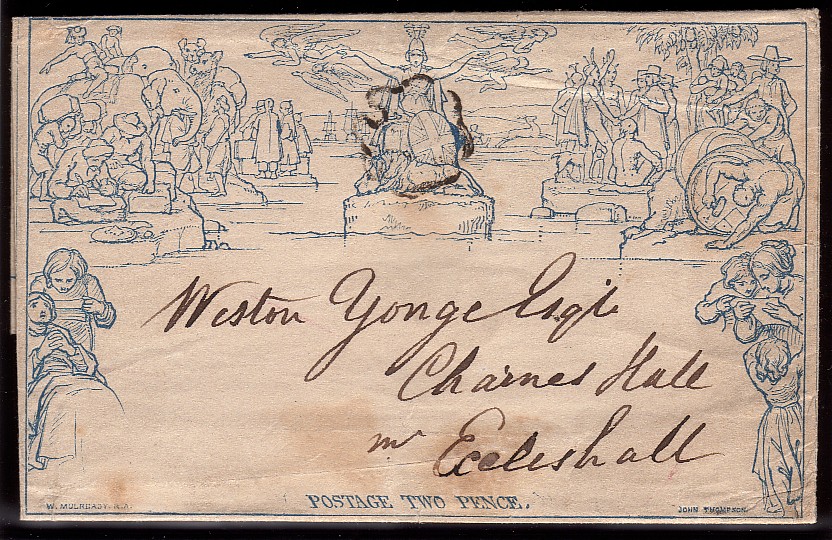 Weston Yonge Esqr
Charnes Hall
nr Eccleshall
POSTAGE TWO PENCE.
W. MULREADY. R.A.
JOHN THOMPSON